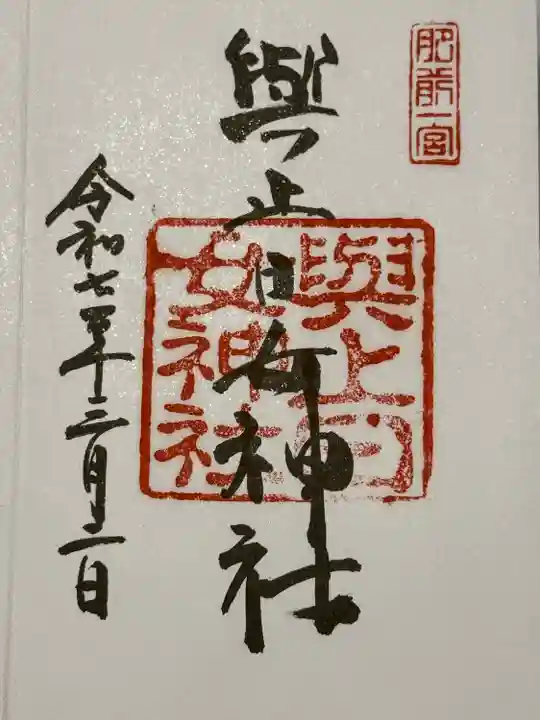 肥前一宮
與止日女神社
與止日
女神社
令和七年十二月二日